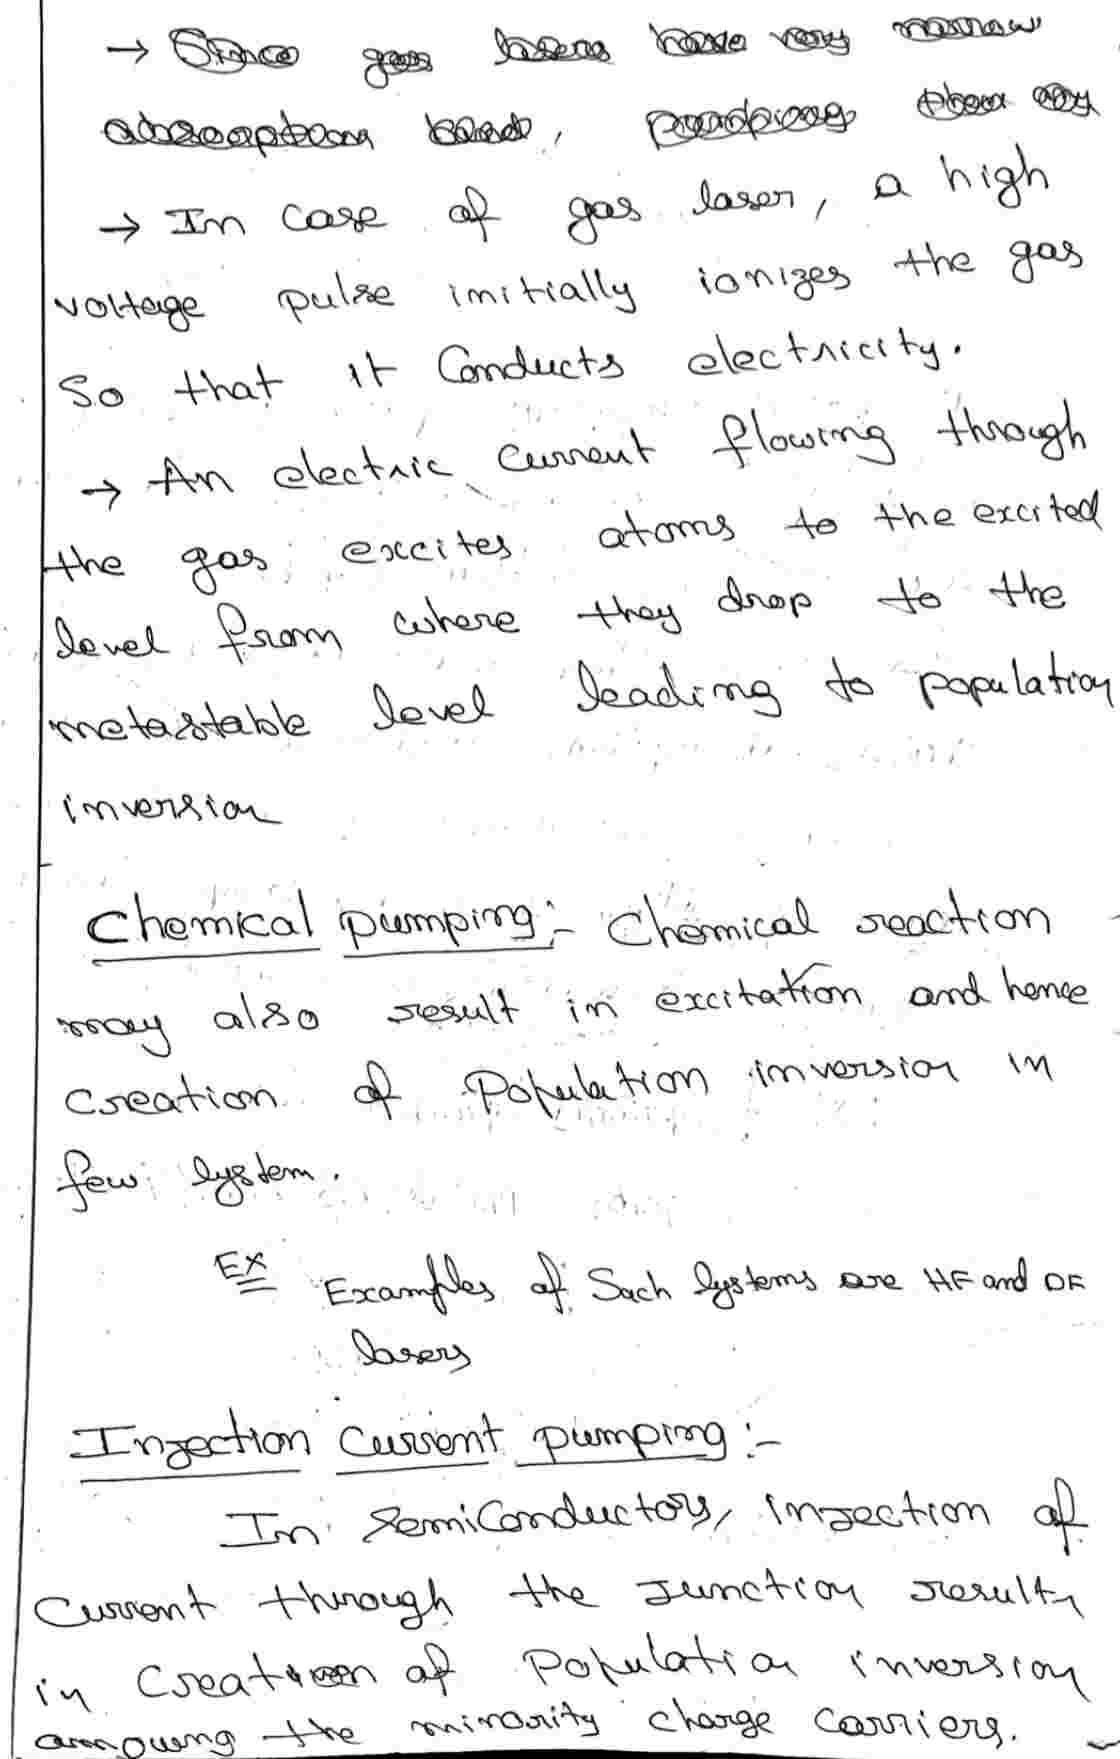 → Since gas lasers have very narrow
absorption band, pumping them any
→ In case of gas laser, a high
voltage pulse initially ionizes the gas
So that it Conducts electricity.
→ An electric current flowing through
the gas excites atoms to the excited
level from where they drop to the
metastable level leading to population
inversion
Chemical pumping:- Chemical reaction
may also result in excitation and hence
creation of Population inversion in
few system.
Ex Examples of Such systems are HF and DF
lasers
Injection current pumping:-
In SemiConductors, injection of
Current through the junction results
in Creation of Population inversion
amoung the minority charge carriers.